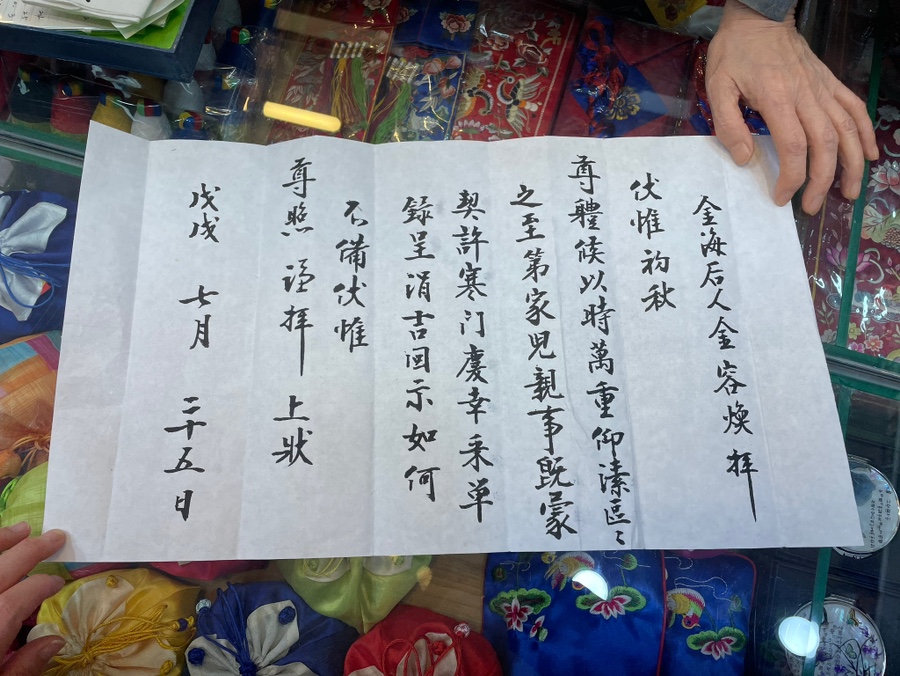 金海后人金容煥 拜
伏惟初秋
尊體候以時萬重仰溸區〻
之至第家児親事既蒙
契許寒门慶幸采单
錄呈涓吉回示如何
不備伏惟
尊照 謹拜 上狀
戊戌 七月 二十五日